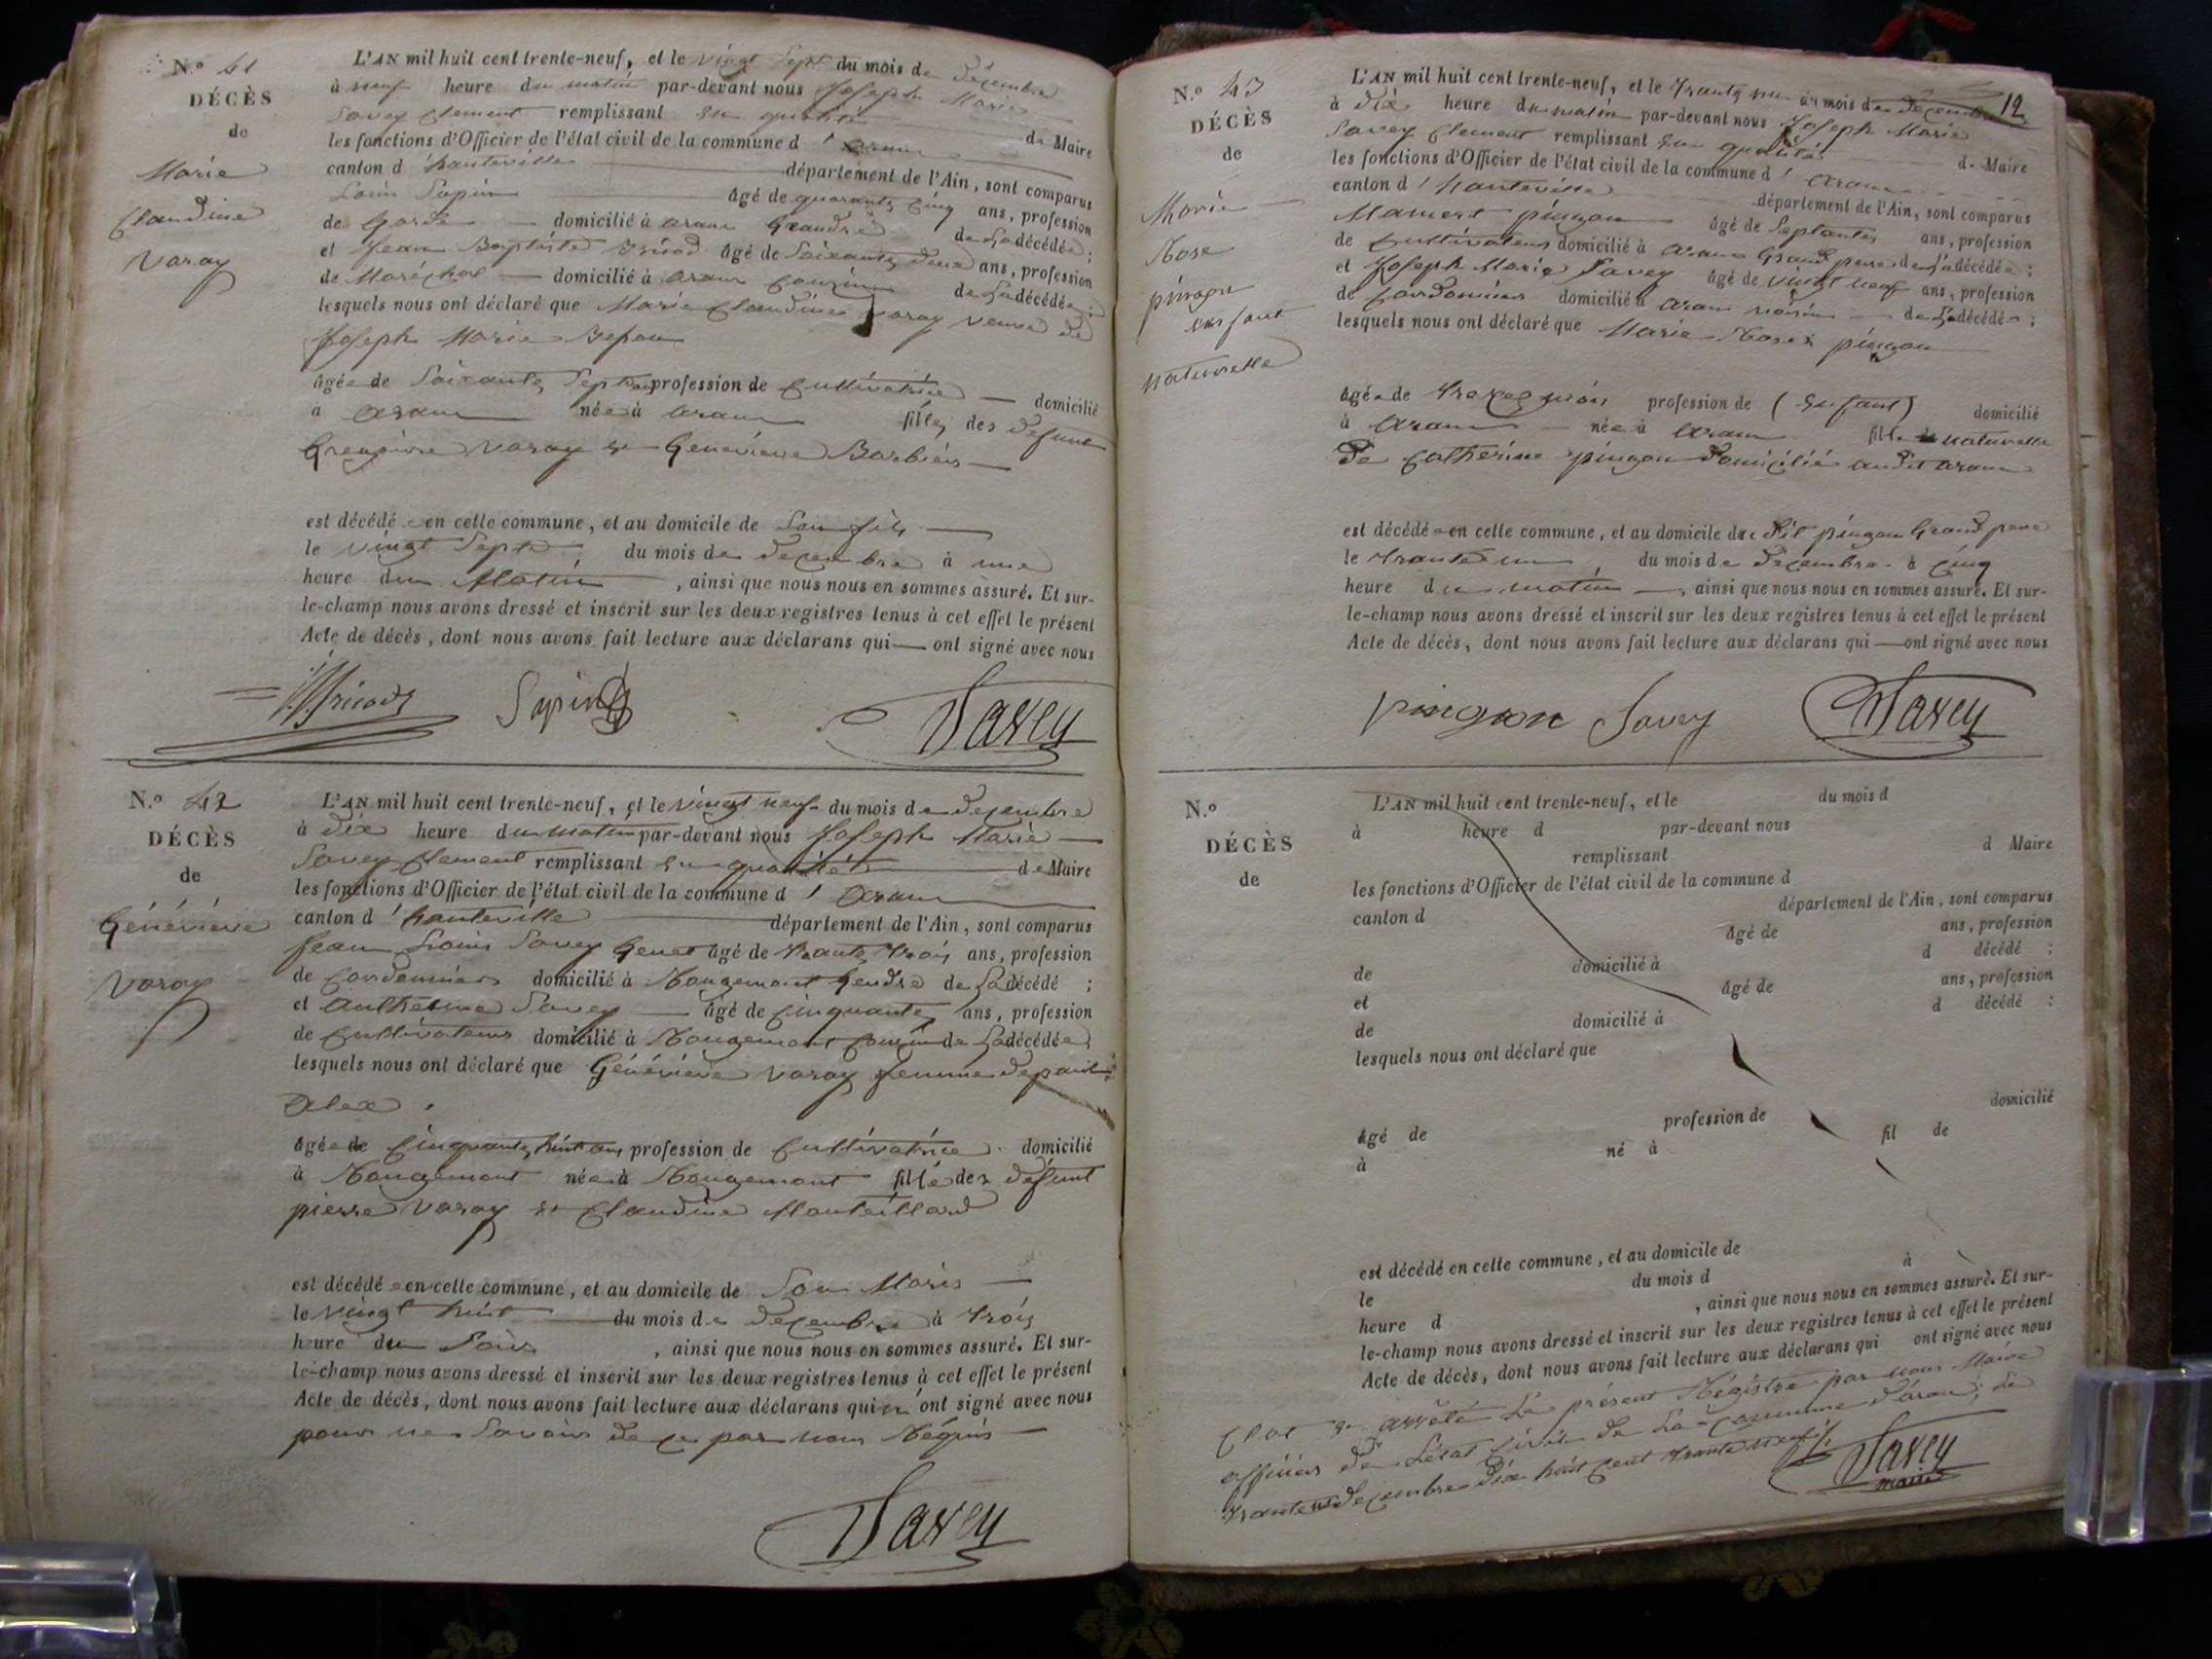 N.o 41
DÉCÈS
de
Marie
Claudine
Varay
L'AN mil huit cent trente-neuf, et le vingt Sept du mois de Décembre
à neuf heure du matin par-devant nous Joseph Marie
Savey Clement remplissant en qualité de Maire
les fonctions d'Officier de l'état civil de la commune d'aranc
canton d'hauteville département de l'Ain, sont comparus
Louis Sapin âgé de quarante cinq ans, profession
de Garde domicilié à aranc Geandre de La décédée;
et Jean Baptiste âgé de Soixante deux ans, profession
de Maréchal domicilié à aranc Cousin de La décédée;
lesquels nous ont déclaré que Marie Claudine varay veuve de
Joseph Marie
âgée de Soixante Sept ans profession de Cultivatrice domicilié
à aranc née à aranc fille des defunt
Gregoire varay et Genevieve Barbier
est décédée en cette commune, et au domicile de Son fils
le vingt Sept du mois de decembre à une
heure du Matin, ainsi que nous nous en sommes assuré. Et sur-
le-champ nous avons dressé et inscrit sur les deux registres tenus à cet effet le présent
Acte de décès, dont nous avons fait lecture aux déclarans qui ont signé avec nous
Sapin Savey
N.o 42
DÉCÈS
de
Généviève
Varay
L'AN mil huit cent trente-neuf, et le vingt neuf du mois de decembre
à dix heure du matin par-devant nous Joseph Marie
Savey Clement remplissant en qualité de Maire
les fonctions d'Officier de l'état civil de la commune d'aranc
canton d'hauteville département de l'Ain, sont comparus
Jean Louis Savey Genet âgé de trante trois ans, profession
de Cordonnier domicilié à Rougemont Gendre de La décédé;
et Anthelme Savey âgé de Cinquante ans, profession
de Cultivateur domicilié à Rougemont Cousin de La décédée
lesquels nous ont déclaré que Généviève varay femme de
Alex.
âgée de Cinquante huit ans profession de Cultivatrice domicilié
à Rougemont née à Rougemont fille des défunt
pierre varay et Claudine Montillard
est décédée en cette commune, et au domicile de Son Maris
le vingt huit du mois de decembre à trois
heure du Soir, ainsi que nous nous en sommes assuré. Et sur-
le-champ nous avons dressé et inscrit sur les deux registres tenus à cet effet le présent
Acte de décès, dont nous avons fait lecture aux déclarans qui n'ont signé avec nous
pour ne Savoir de ce par nous Réquis
Savey
12
N.o 43
DÉCÈS
de
Marie
Rose
pingon
enfant
naturelle
L'AN mil huit cent trente-neuf, et le trante un du mois de decembre
à dix heure du matin par-devant nous Joseph Marie
Savey Clement remplissant en qualité de Maire
les fonctions d'Officier de l'état civil de la commune d'aranc
canton d'hauteville département de l'Ain, sont comparus
Mamert pingon âgé de Septante ans, profession
de Cultivateur domicilié à aranc Grand pere de La décédée;
et Joseph Marie Savey âgé de vingt neuf ans, profession
de Cordonnier domicilié à aranc voisin de La décédée;
lesquels nous ont déclaré que Marie Rose pingon
âgée de treize mois profession de (Enfant) domicilié
à aranc née à aranc fille naturelle
de Catherine pingon domicilié audit aranc
est décédée en cette commune, et au domicile du dit pingon Grand pere
le trante un du mois de decembre à cinq
heure du matin, ainsi que nous nous en sommes assuré. Et sur-
le-champ nous avons dressé et inscrit sur les deux registres tenus à cet effet le présent
Acte de décès, dont nous avons fait lecture aux déclarans qui ont signé avec nous
pingon Savey Savey
N.o
DÉCÈS
de
L'AN mil huit cent trente-neuf, et le du mois d
à heure d par-devant nous
remplissant d Maire
les fonctions d'Officier de l'état civil de la commune d
canton d département de l'Ain, sont comparus
âgé de ans, profession
de domicilié à d décédé;
et âgé de ans, profession
de domicilié à d décédé;
lesquels nous ont déclaré que
âgé de profession de domicilié
à né à fil de
est décédé en cette commune, et au domicile de
le du mois d à
heure d, ainsi que nous nous en sommes assuré. Et sur-
le-champ nous avons dressé et inscrit sur les deux registres tenus à cet effet le présent
Acte de décès, dont nous avons fait lecture aux déclarans qui ont signé avec nous
Clot et arrêté Le présent Régistre par nous Maire
officier de L'état Civil de La Commune d'aranc, Le
trante un decembre dix huit cent trante neuf
Savey
maire